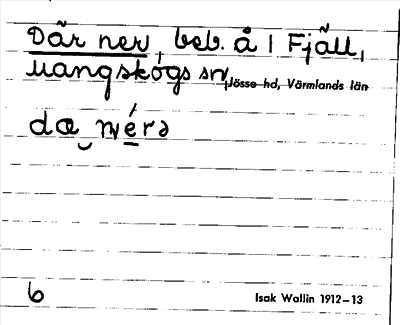 Där ner, beb. å 1 Fjäll,
Mangskogs sn, Jösse hd, Värmlands län
6
Isak Wallin 1912–13